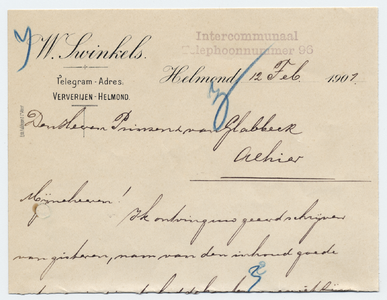 W. Swinkels.
Intercommunaal
Telephoonnummer 96
Telegram-Adres.
VERVERIJEN-HELMOND.
Helmond, 12 Feb 1901.
Den Heeren Prinzen & van Glabbeek
Alhier
Mijneheeren!
Ik ontving uw geeerd schrijven
van gisteren, nam van den inhoud goede